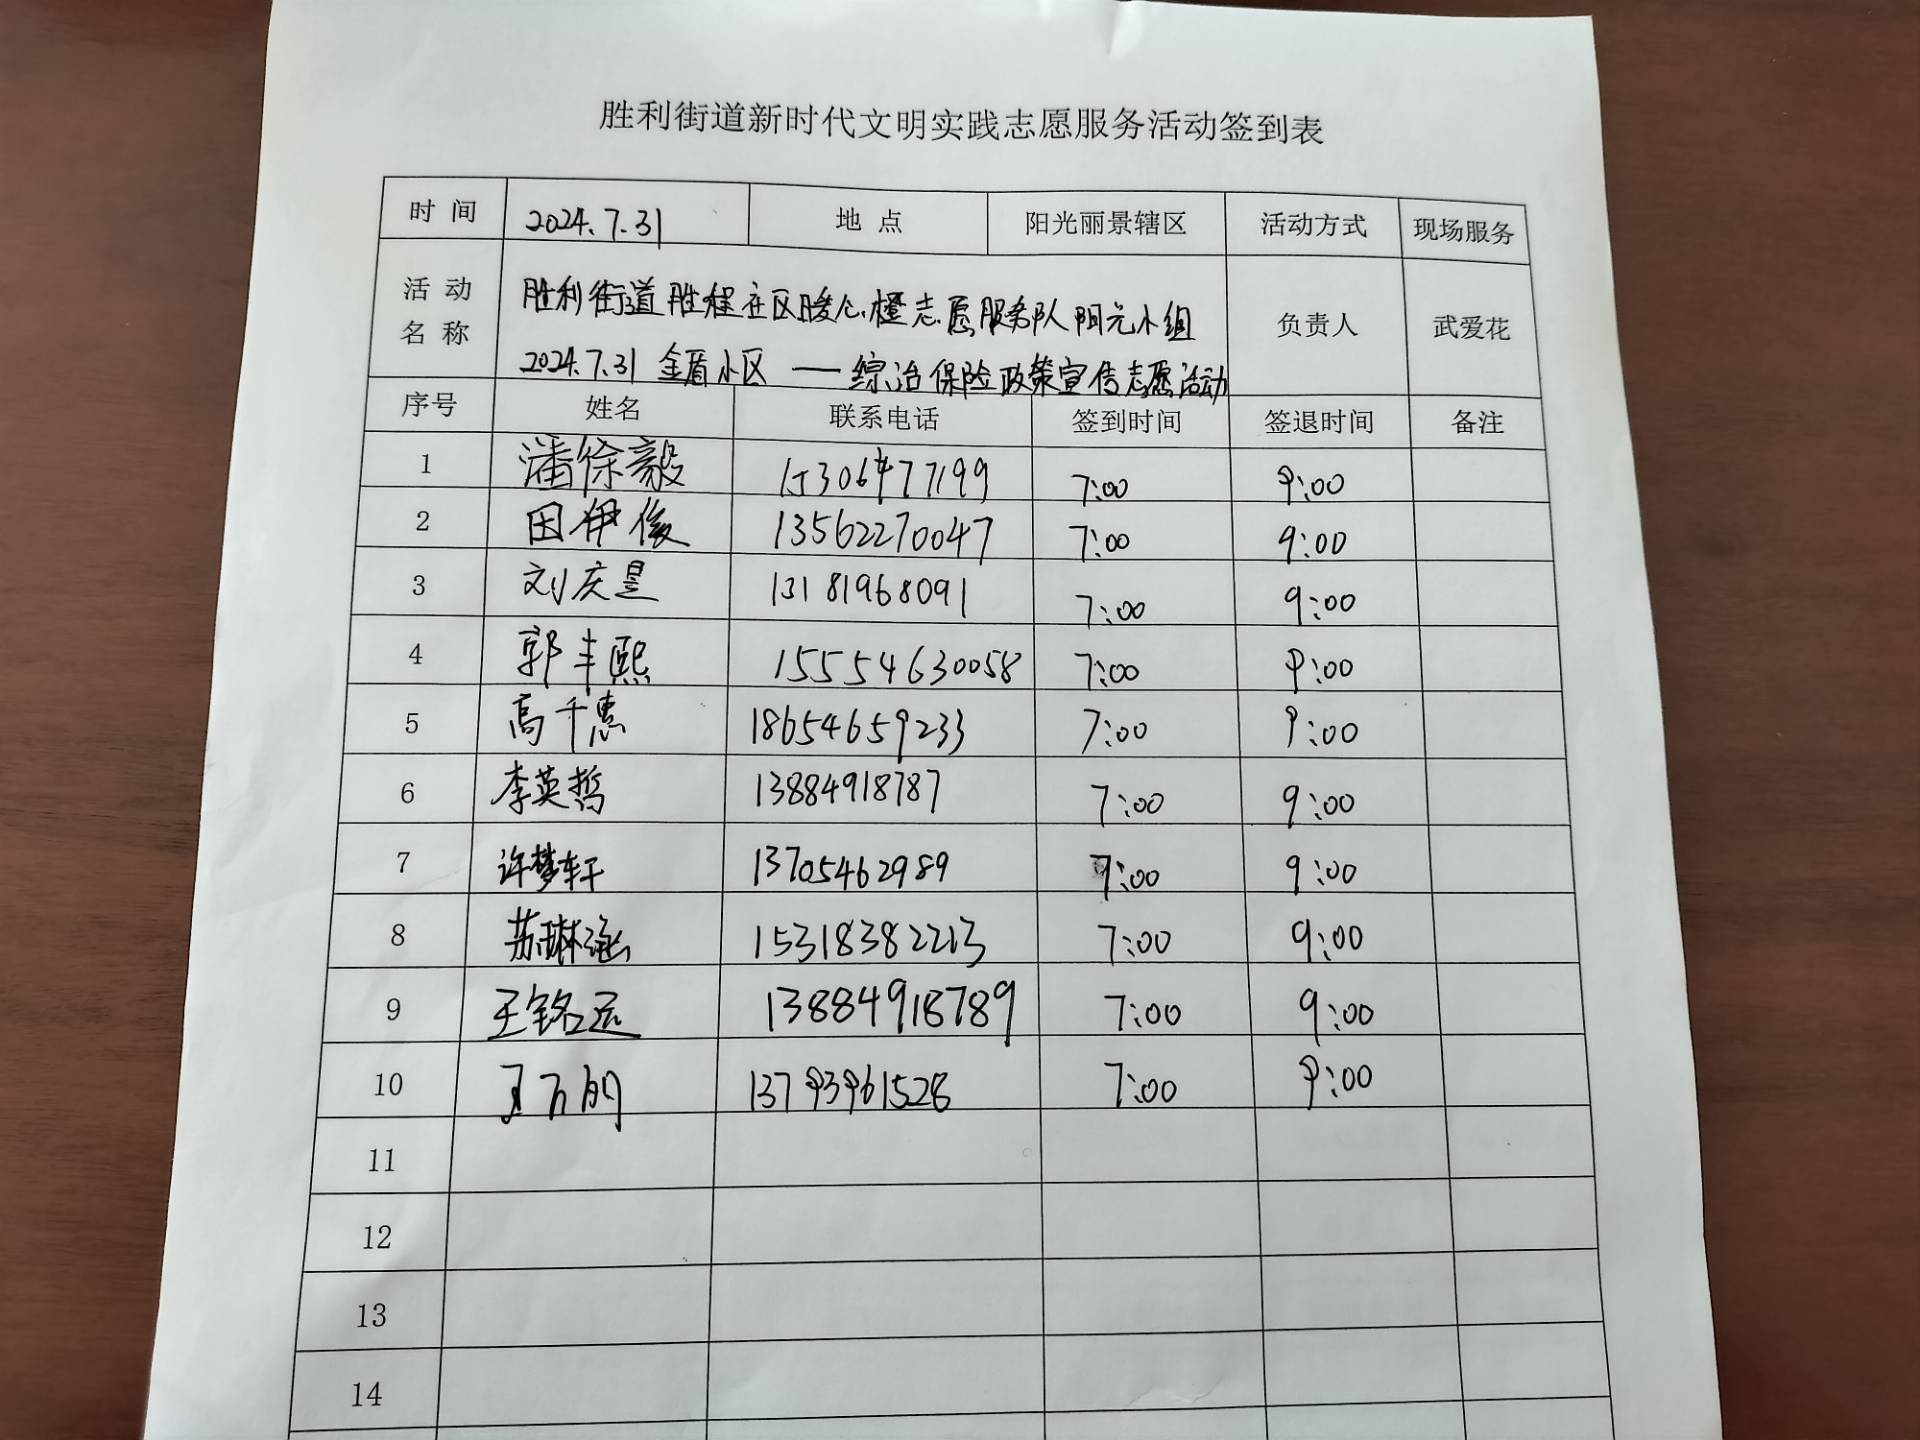 胜利街道新时代文明实践志愿服务活动签到表
时 间 2024.7.31 地 点 阳光丽景辖区 活动方式 现场服务
活 动 名 称 胜利街道胜程社区暖心橙志愿服务队阳光小组 负责人 武爱花
2024.7.31 金盾小区 —— 综治保险政策宣传志愿活动
序号 姓名 联系电话 签到时间 签退时间 备注
1 潘徐毅 15306477199 7:00 9:00
2 田伊俊 13562270047 7:00 9:00
3 刘庆昱 13181968091 7:00 9:00
4 郭丰熙 15554630058 7:00 9:00
5 高千惠 18654659233 7:00 9:00
6 李英哲 13884918787 7:00 9:00
7 许梦轩 13705462989 7:00 9:00
8 苏琳涵 15318382213 7:00 9:00
9 王铭远 13884918789 7:00 9:00
10 王 13793961528 7:00 9:00
11
12
13
14